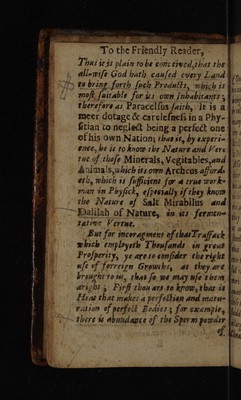 To the Friendly Reader,
Thus it is plain to be conceived, that the
all-wise God hath caused every Land
to bring forth such Products, which is
most suitable for its own Inhabitants;
therefore as Paracelsus saith, It is a
meer dotage & carelesness in a Phy-
sitian to neglect being a perfect one
of his own Nation; that is, by experi-
ence, he is to know the Nature and Ver-
tue of those Minerals, Vegitables, and
Animals, which its own Archeus afford-
eth, which is sufficient for a true work-
man in Physick, especially if they know
the Nature of Salt Mirabilus and
Dalilah of Nature, in its fermen-
tative Vertue.
But for incoragment of that Traffack
which employeth Thousands in great
Prosperity, ye are to consider the right
use of forreign Growths, as they are
brought to us, that so we may use them
aright; First thou art to know, that it is
Heat that makes a perfection and matu-
ration of perfect Bodies; for example,
there is abundance of the Sperm powder
of